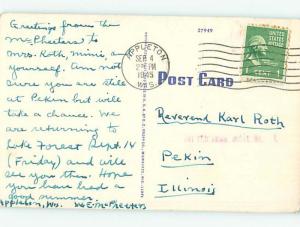 Greetings from the
McPheeters to
Mrs. Roth, Mimi, and
yourself. Am not
sure you are still
at Pekin but will
take a chance. We
are returning to
Lake Forest Sept. 14
(Friday) and will
see you then. Hope
you have had a
good summer.
Appleton, Wis. W E McPheeters
APPLETON
SEP 4
2 PM
1945
WIS.
27949
1 CENT 1
POST CARD
Reverend Karl Roth
Pekin
Illinois